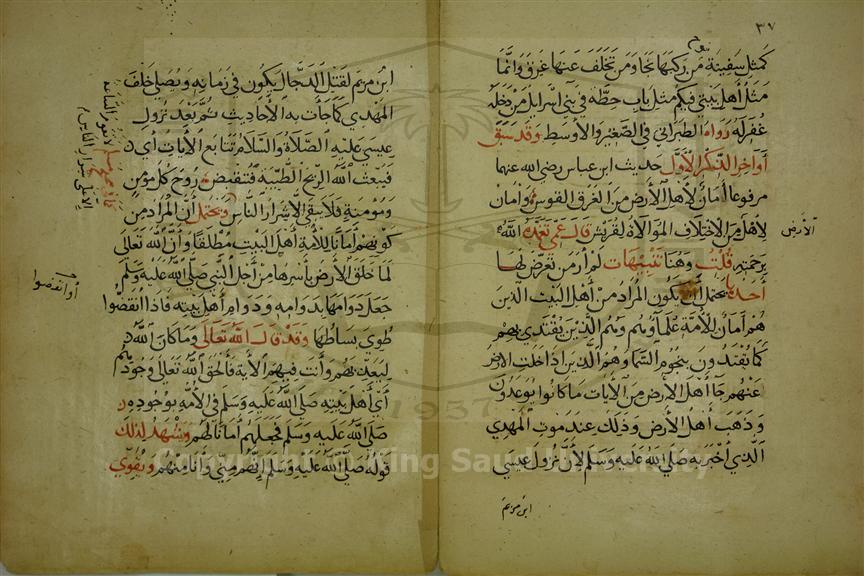 ٣٧
نوح
كمثل سفينة من ركبها نجا ومن تخلف عنها غرق وانما
مثل أهل بيتي فيكم مثل باب حطه في بني اسرائيل من دخله
غفر له رواه الطبراني في الصغير والأوسط وقد سبق
أواخر الذكر الأول حديث ابن عباس رضي الله عنهما
مرفوعا أمان لأهل الأرض من الغرق القوس وأمان
لأهل من الاختلاف الموالاة لقريش قال عمي تغمده الله
الأرض
برحمته قلت وهنا تنبيهات لم أر من تعرض لها
أحدها يحتمل أن يكون المراد من أهل البيت الذين
هم أمان للأمة علماؤهم وهم الذين يقتدي بهم
كما يقتدون بنجوم السما وهم الذين اذا خلت الأرض
عنهم جاء أهل الأرض من الآيات ما كانوا يوعدون
وذهب أهل الأرض وذلك عند موت المهدي
الذي أخبر به صلى الله عليه وسلم لأن نزول عيسى
ابن مريم
ابن مريم لقتل الدجال يكون في زمانه ويصلي خلف
المهدي كما جأت به الأحاديث ثم بعد نزول
عيسى عليه الصلاة والسلام تتابع الآيات أي
فيبعث الله الريح الطيبة فتقبض روح كل مؤمن
ومؤمنة فلا يبقى الا شرار الناس ويحتمل أن المراد من
كونهم أمانا للأمة أهل البيت مطلقا وأن الله تعالى
لما خلق الأرض بأسرها من أجل النبي صلى الله عليه وسلم
جعل دوامها بدوامه ودوام أهل بيته فاذا انقضوا
أو انقضوا
طوي بساطها وقد قال الله تعالى وما كان الله
ليعذبهم وأنت فيهم الآية فألحق الله تعالى وجودهم
أي أهل بيته صلى الله عليه وسلم في الأمة بوجوده
صلى الله عليه وسلم فجعلهم أمانا لهم ويشهد لذلك
قوله صلى الله عليه وسلم إنهم مني وأنا منهم ويقوي
1957
Copyright © King Saud University